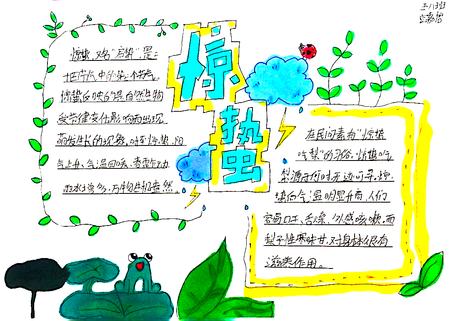 惊
蛰
惊蛰,又名"启蛰",是二
十四节气中的第三个节气,
惊蛰反映的是自然生物
受节律变化影响而出现
萌发生长的现象。时至惊蛰,阳
气上升、气温回暖、春雷乍动、
雨水增多,万物生机盎然。
在民间素有"惊蛰
吃梨"的习俗,惊蛰吃
梨源于何时无迹可寻,惊
蛰后气温明显升高,人们
容易口干、舌燥、外感咳嗽,而
梨子性寒味甘,对身体很有
滋养作用。